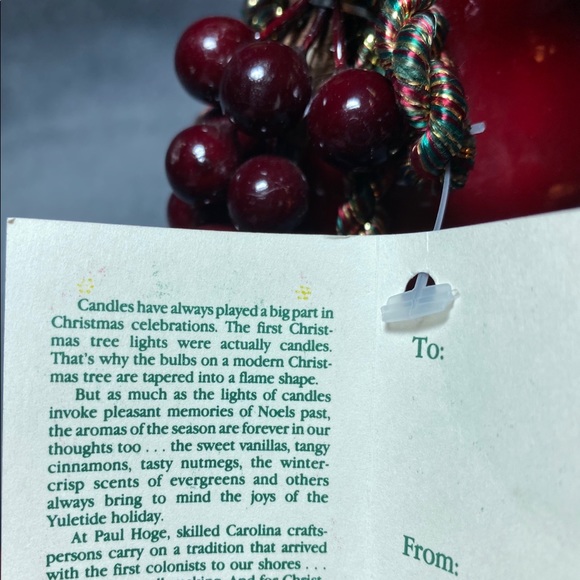 Candles have always played a big part in
Christmas celebrations. The first Christ-
mas tree lights were actually candles.
That's why the bulbs on a modern Christ-
mas tree are tapered into a flame shape.
But as much as the lights of candles
invoke pleasant memories of Noels past,
the aromas of the season are forever in our
thoughts too . . . the sweet vanillas, tangy
cinnamons, tasty nutmegs, the winter-
crisp scents of evergreens and others
always bring to mind the joys of the
Yuletide holiday.
At Paul Hoge, skilled Carolina crafts-
persons carry on a tradition that arrived
with the first colonists to our shores . . .
making. And for Christ-
To:
From: